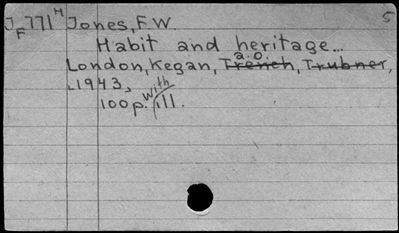 J F 771 H Jones, F.W. 5
Habit and heritage...
a.o.
London, Kegan, Trench, Trubner,
1943,
100 p. with ill.